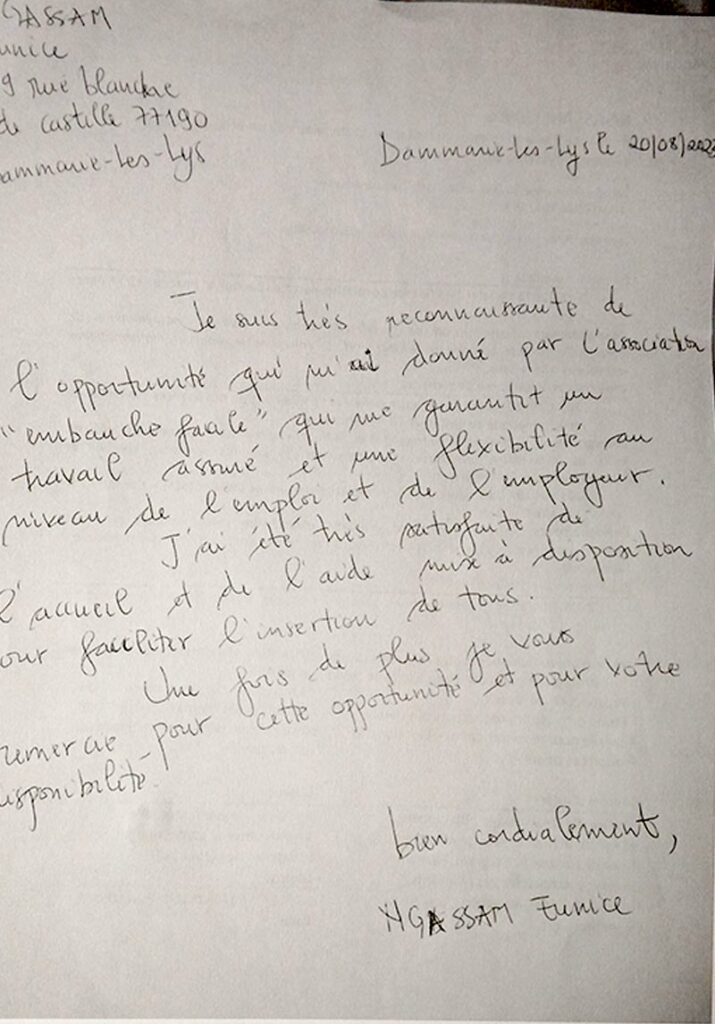 GASSAM
unice
9 rue blanche
de castille 77190
ammarie-les-Lys
Dammarie-les-Lys le 20/08/202
Je suis très reconnaissante de
l'opportunité qui m'ai donné par l'association
"embauche facile" qui me garantit un
travail assuré et une flexibilité au
niveau de l'emploi et de l'employeur.
J'ai été très satisfaite de
l'accueil et de l'aide mise à disposition
our faciliter l'insertion de tous.
Une fois de plus je vous
remercie pour cette opportunité et pour votre
isponibilité.
bien cordialement,
NGASSAM Eunice